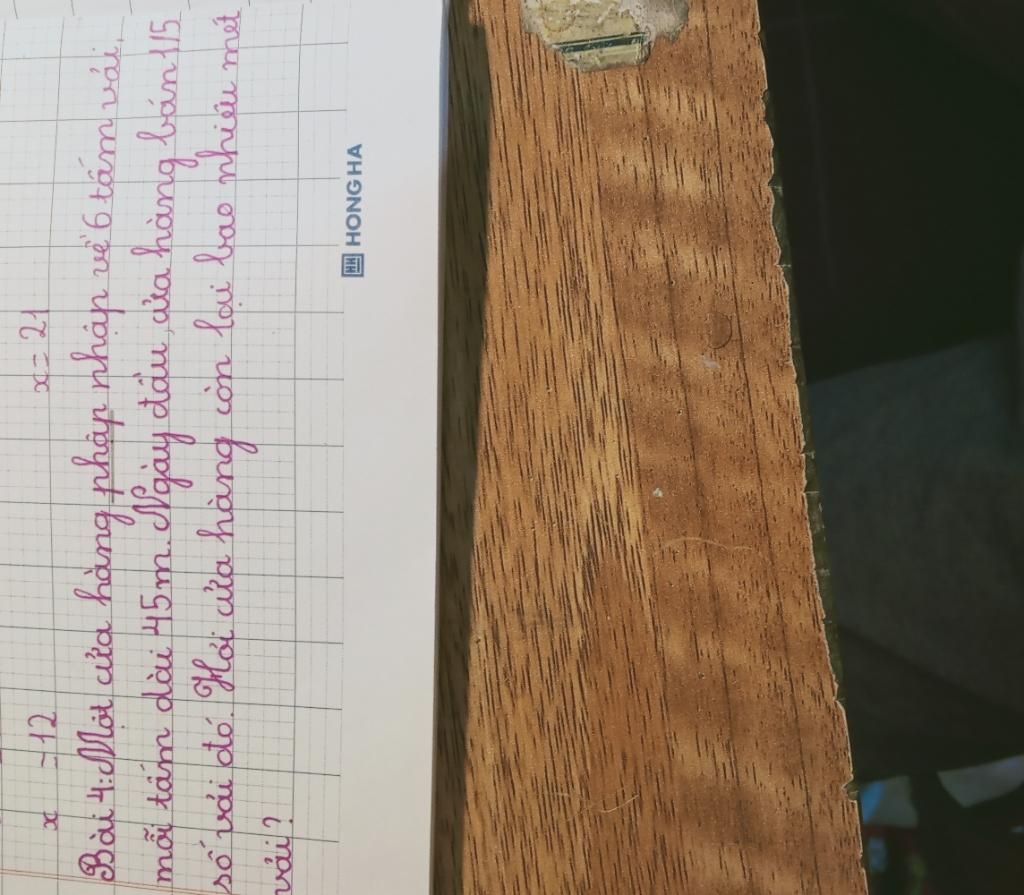 x = 12 x = 21
Bài 4: Một cửa hàng pháp nhập về 6 tấm vải,
mỗi tấm dài 45m. Ngày đầu, cửa hàng bán 1/5
số vải đó. Hỏi cửa hàng còn lại bao nhiêu mét
vải?
HONG HA